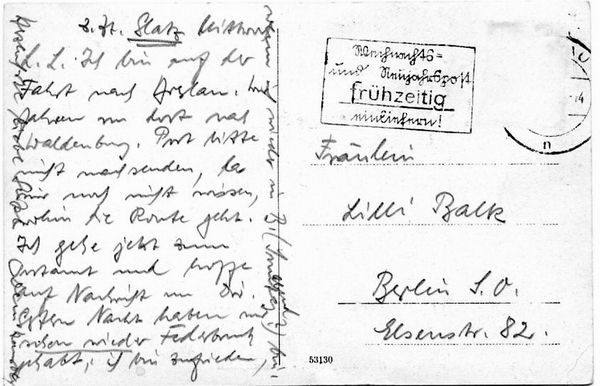 z. Zt. Glatz Mittwoch
L. L. Ich bin auf der
Fahrt nach Breslau. Wir
fahren von dort nach
Waldenburg. Post bitte
nicht nachsenden, da
wir noch nicht wissen,
wohin die Route geht.
Ich gehe jetzt zum
Postamt und hoffe
auf Nachricht von Dir.
Gestern Nacht haben wir
schon wieder Federbruch
gehabt, ich bin zufrieden,
wenn ich wieder in B.
bin.
Weihnachts=
und Neujahrspost
frühzeitig
einliefern!
Fräulein
Lilli Balk
Berlin S.O.
Elsenstr. 82.
53130